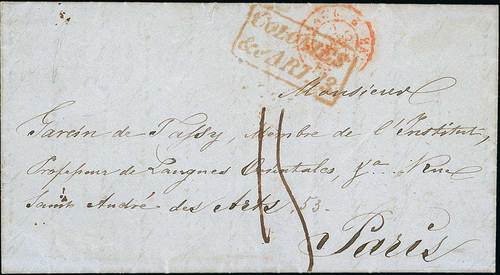 COLONIES
&c ART. 13
Monsieur
Garcin de Tassy, Membre de l'Institut,
Professeur de Langues Orientales, Rue
Saint André des Arts, 53.
Paris
15